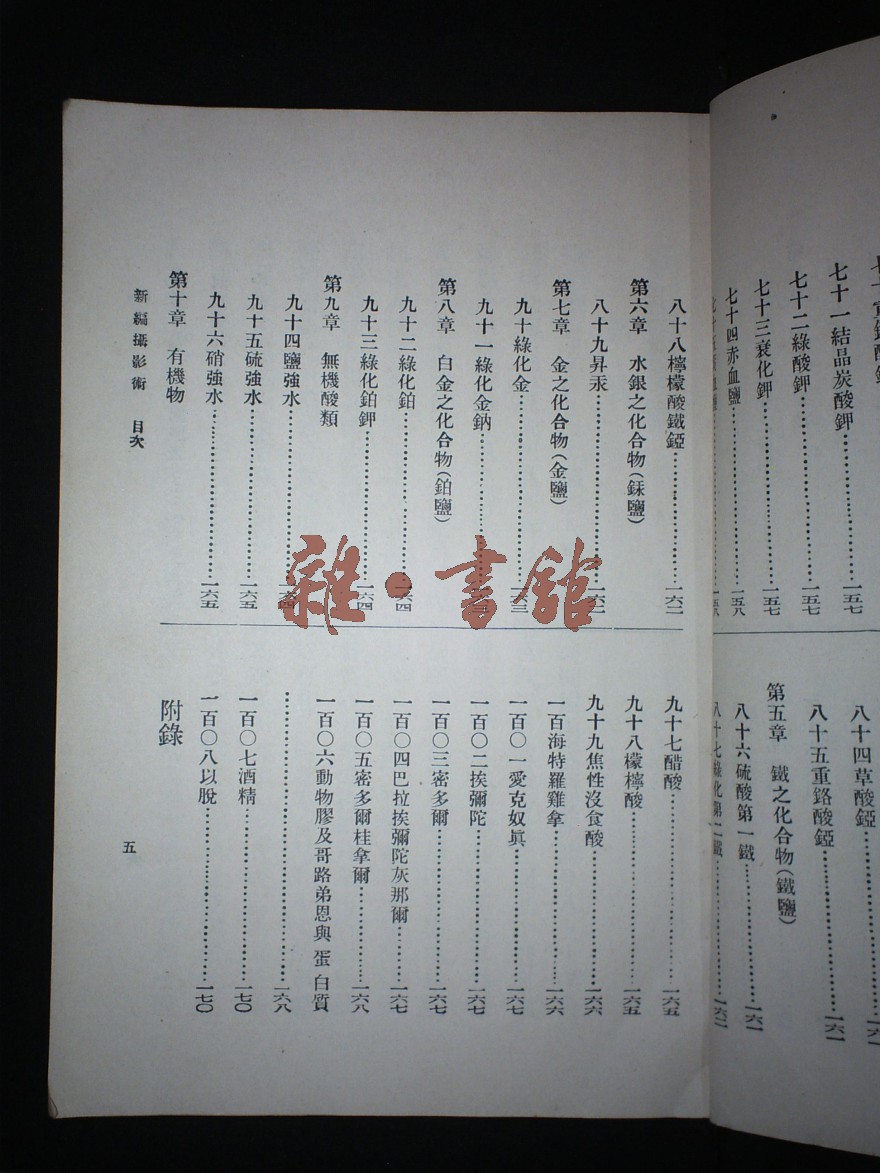 七十一結晶炭酸鉀……一五七
七十二綠酸鉀……一五七
七十三衰化鉀……一五七
七十四赤血鹽……一五八
八十四草酸錏……一六一
八十五重鉻酸錏……一六一
第五章 鐵之化合物(鐵鹽)
八十六硫酸第一鐵……一六一
八十七綠化第二鐵……一六二
八十八檸檬酸鐵錏……一六二
第六章 水銀之化合物(銾鹽)
八十九昇汞……一六二
第七章 金之化合物(金鹽)
九十綠化金……一六三
九十一綠化金鈉……
第八章 白金之化合物(鉑鹽)
九十二綠化鉑……一六四
九十三綠化鉑鉀……一六四
第九章 無機酸類
九十四鹽強水……一六四
九十五硫強水……一六五
九十六硝強水……一六五
第十章 有機物
九十七醋酸……一六五
九十八檬檸酸……一六五
九十九焦性沒食酸……一六六
一百海特羅雞拿……一六六
一百〇一愛克奴眞……一六七
一百〇二挨彌陀……一六七
一百〇三密多爾……一六七
一百〇四巴拉挨彌陀灰那爾……一六七
一百〇五密多爾桂拿爾……一六八
一百〇六動物膠及哥路弟恩與蛋白質
……一六八
一百〇七酒精……一七〇
一百〇八以脫……一七〇
附錄
新編攝影術 目次
五
雜·書館